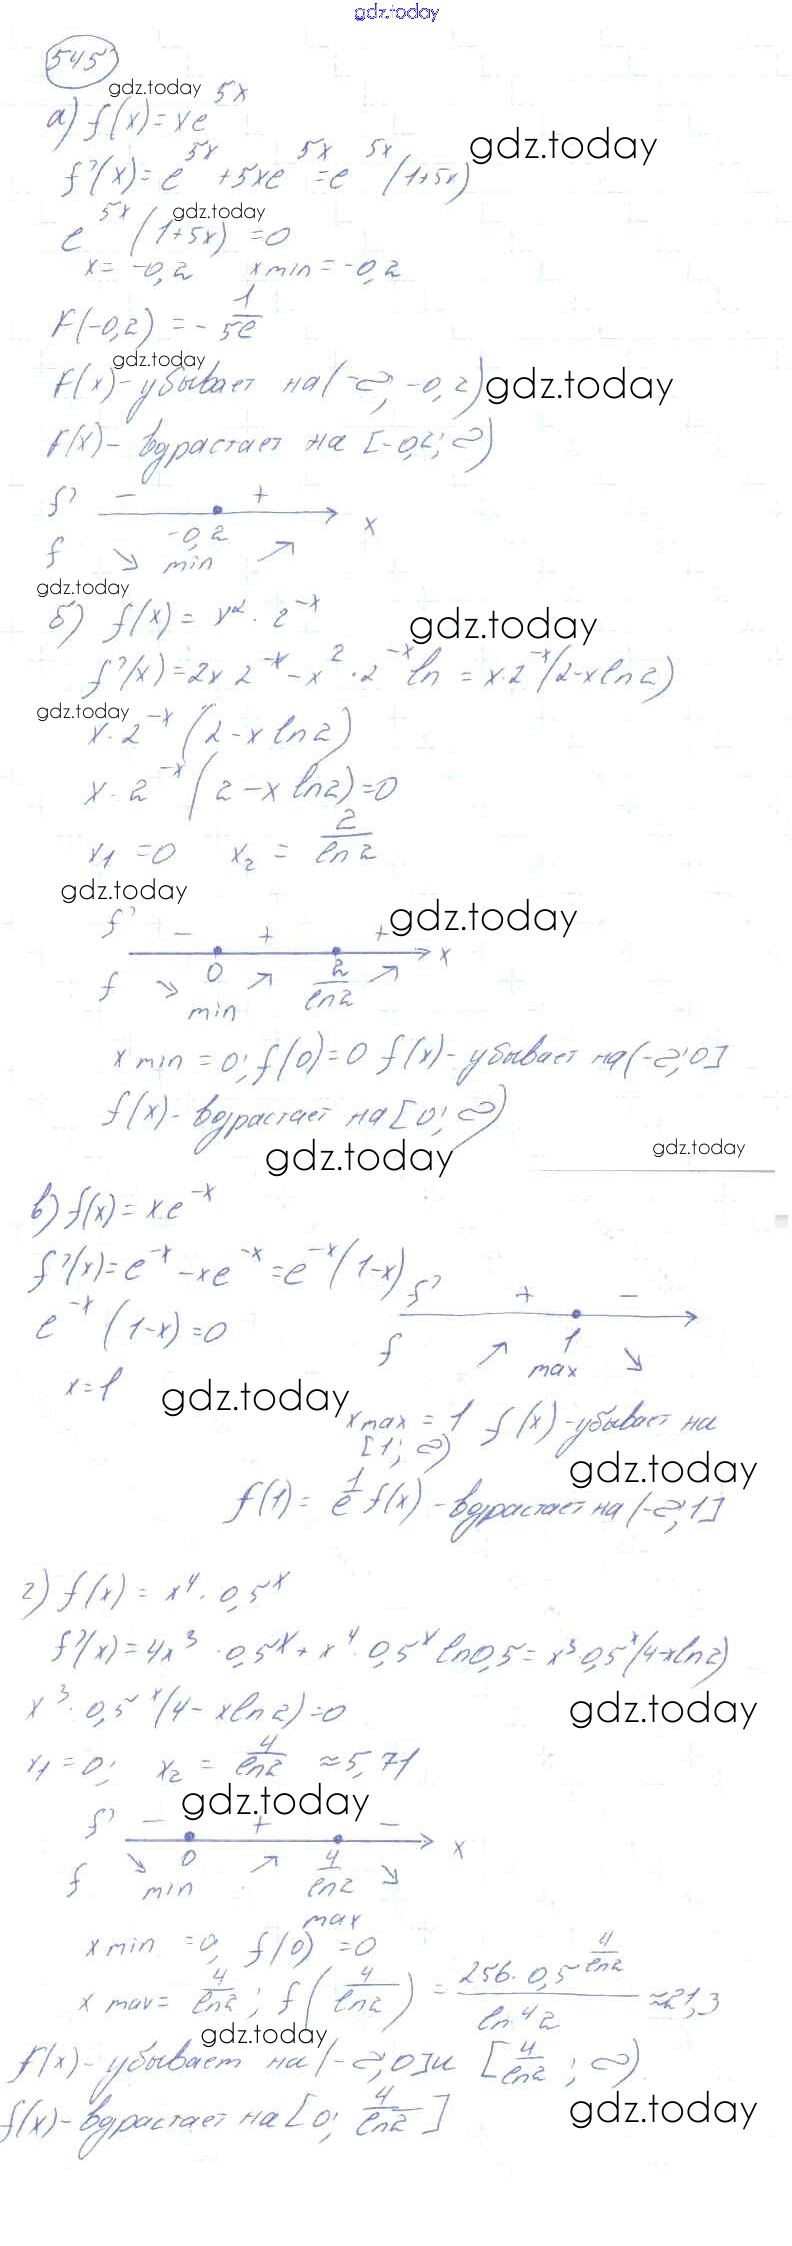 gdz.today
545
gdz.today
а) f(x) = xe^5x
gdz.today
f'(x) = e^5x + 5xe^5x = e^5x (1+5x)
gdz.today
e^5x (1+5x) = 0
x = -0,2 x min = -0,2
F(-0,2) = - 1/5e
gdz.today
F(x) - убывает на (-∞, -0,2)
gdz.today
F(x) - вдрастает на [-0,2; ∞)
f' - + 
-0,2 x
f ↘ min ↗
gdz.today
б) f(x) = x² · 2^-x
gdz.today
f'(x) = 2x 2^-x - x² · 2^-x ln = x · 2^-x (2-x ln 2)
gdz.today
x · 2^-x (2 - x ln 2)
x · 2^-x (2 - x ln 2) = 0
x₁ = 0 x₂ = 2/ln 2
gdz.today
f' - + +
gdz.today
0 2/ln2 x
f ↘ min ↗ ↗
x min = 0; f(0) = 0 f(x) - убывает на (-∞; 0]
f(x) - возрастает на [0; ∞)
gdz.today
gdz.today
в) f(x) = x·e^-x
f'(x) = e^-x - xe^-x = e^-x (1-x)
e^-x (1-x) = 0
x = 1
f' + -
1
f ↗ max ↘
gdz.today
x max = 1 f(x) - убывает на
[1; ∞)
gdz.today
f(1) = 1/e f(x) - вдрастает на (-∞; 1]
г) f(x) = x⁴ · 0,5^x
f'(x) = 4x³ · 0,5^x + x⁴ · 0,5^x ln 0,5 = x³ 0,5^x (4-x ln 2)
x³ · 0,5^x (4 - x ln 2) = 0
gdz.today
x₁ = 0; x₂ = 4/ln2 ≈ 5,71
gdz.today
f' - + -
0 4/ln2 x
f ↘ min ↗ max ↘
x min = 0, f(0) = 0
x max = 4/ln2; f(4/ln2) = 256 · 0,5^(4/ln2) / ln⁴2 ≈ 21,3
gdz.today
f(x) - убывает на (-∞, 0] и [4/ln2; ∞)
gdz.today
f(x) - вдрастает на [0; 4/ln2]